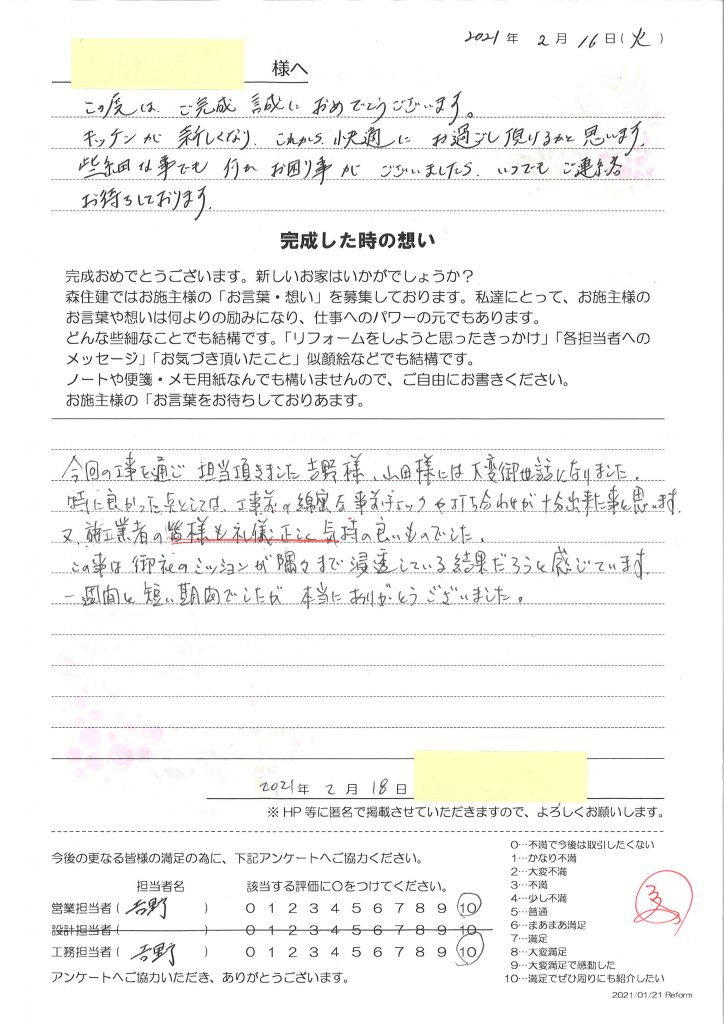 2021 年 2 月 16 日(火)
様へ
この度は、ご完成 誠に おめでとうございます。
キッチンが 新しくなり、これから、快適に お過ごし頂けるかと思います。
些細な事でも 何か お困り事が ございましたら、いつでも ご連絡
お待ちしております。
完成した時の想い
完成おめでとうございます。新しいお家はいかがでしょうか?
森住建ではお施主様の「お言葉・想い」を募集しております。私達にとって、お施主様の
お言葉や想いは何よりの励みになり、仕事へのパワーの元でもあります。
どんな些細なことでも結構です。「リフォームをしようと思ったきっかけ」「各担当者への
メッセージ」「お気づき頂いたこと」似顔絵などでも結構です。
ノートや便箋・メモ用紙なんでも構いませんので、ご自由にお書きください。
お施主様の「お言葉をお待ちしておりあます。
今回の工事を通じ 担当頂きました 吉野様、山田様には 大変御世話になりました。
特に良かった点としては、工事前の綿密な事前チェックや打ち合わせが十分出来た事と思います。
又、施工業者の皆様も礼儀正しく気持の良いものでした。
この事は 御社のミッションが隅々まで浸透している結果だろうと感じています。
一週間と短い期間でしたが 本当にありがとうございました。
2021年 2 月 18 日
※HP等に匿名で掲載させていただきますので、よろしくお願いします。
今後の更なる皆様の満足の為に、下記アンケートへご協力ください。
担当者名 該当する評価に○をつけてください。
営業担当者( 吉野 ) 0 1 2 3 4 5 6 7 8 9 10
設計担当者( ) 0 1 2 3 4 5 6 7 8 9 10
工務担当者( 吉野 ) 0 1 2 3 4 5 6 7 8 9 10
アンケートへご協力いただき、ありがとうございます。
0…不満で今後は取引したくない
1…かなり不満
2…大変不満
3…不満
4…少し不満
5…普通
6…まあまあ満足
7…満足
8…大変満足
9…大変満足で感動した
10…満足でぜひ周りにも紹介したい
2021/01/21 Reform